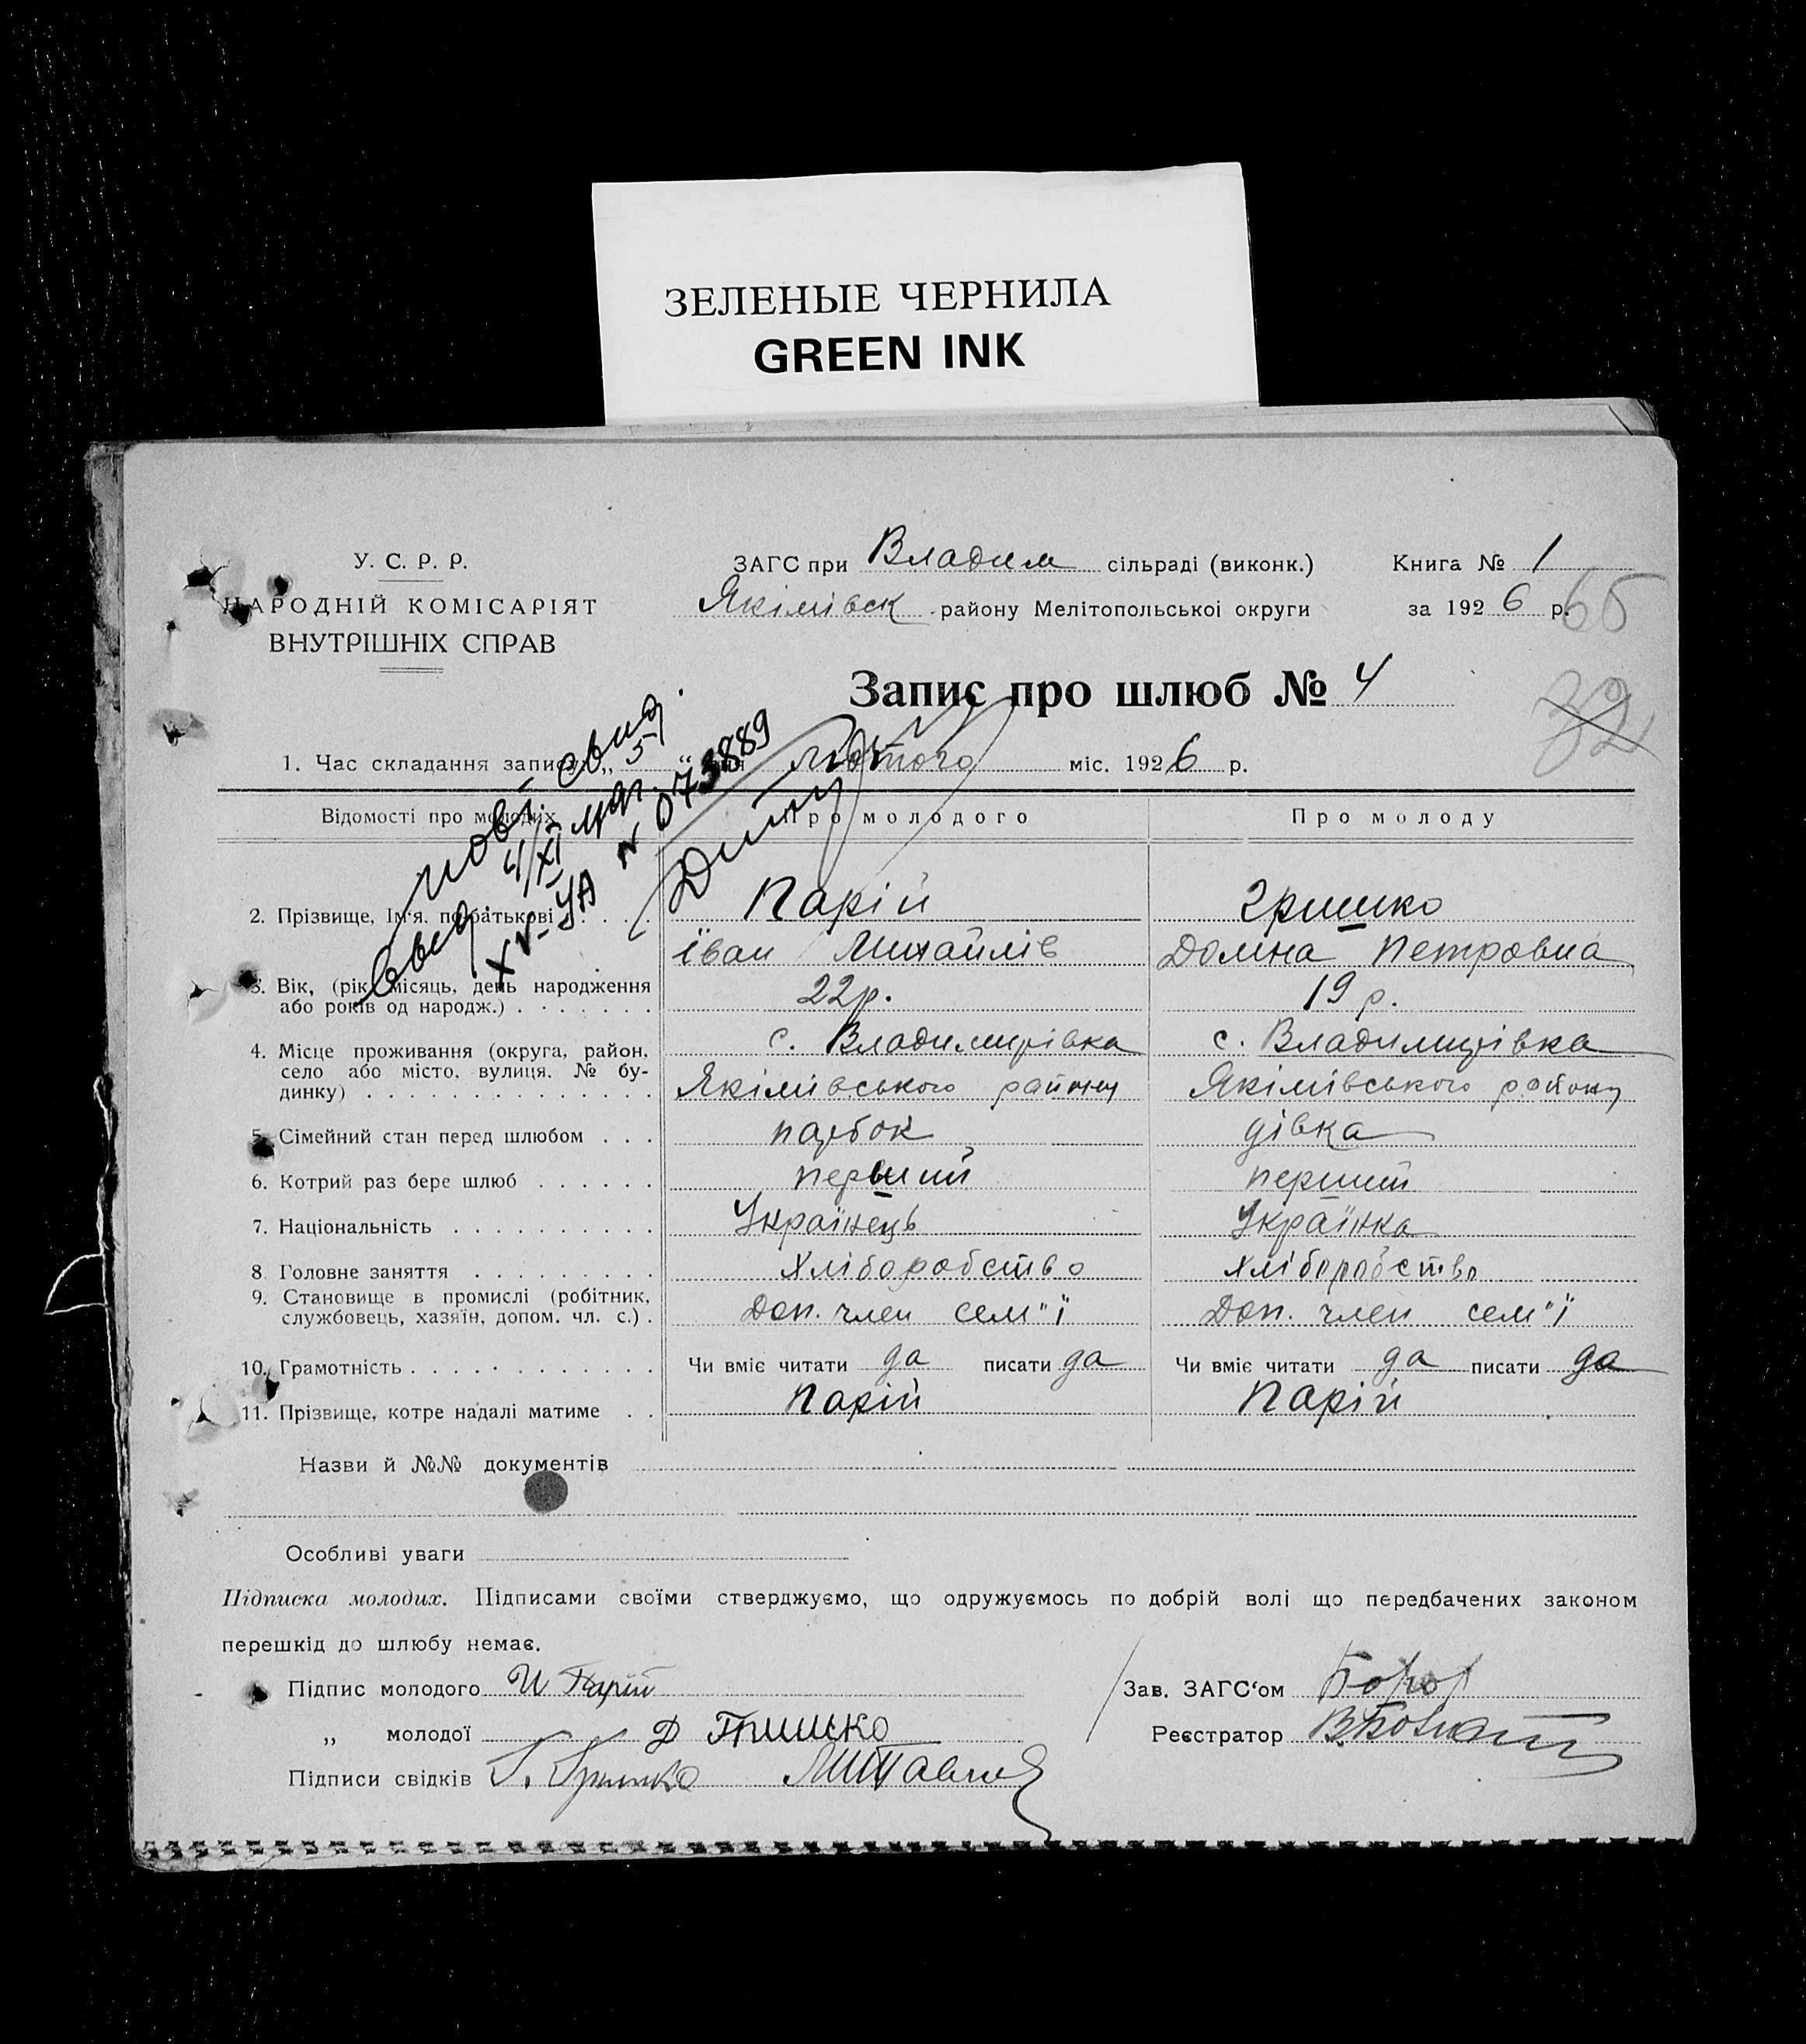 ЗЕЛЕНЫЕ ЧЕРНИЛА
GREEN INK
У. С. Р. Р.
НАРОДНІЙ КОМІСАРІЯТ
ВНУТРІШНІХ СПРАВ
ЗАГС при Владим сільраді (виконк.)
Якімівск району Мелітопольськоі округи
Книга № 1
за 1926 р.
65
32
Запис про шлюб № 4
1. Час складання запису „ 5 “ дня лютого міс. 1926 р.
XV-УА N 073889
Відомості про молодих Про молодого Про молоду
2. Прізвище, Ім'я, по батькові . . . . Парій Гришко
Іван Михайлів Домна Петровна
3. Вік, (рік, місяць, день народження 22р. 19 р.
або років од народж.) . . . . . . .
4. Місце проживання (округа, район, с. Владимирівка с. Владимирівка
село або місто, вулиця, № бу- Якімівського району Якімівського району
динку) . . . . . . . . . . . . . .
5. Сімейний стан перед шлюбом . . . парубок дівка
6. Котрий раз бере шлюб . . . . . . перший перший
7. Національність . . . . . . . . . . Українець Українка
8. Головне заняття . . . . . . . . . Хліборобство Хліборобство
9. Становище в промислі (робітник, Доп. член сем"ї Доп. член сем"ї
службовець, хазяїн, допом. чл. с.) .
10. Грамотність . . . . . . . . . . . . Чи вміє читати да писати да Чи вміє читати да писати да
11. Прізвище, котре надалі матиме . . Парій Парій
Назви й №№ документів
Особливі уваги
Підписка молодих. Підписами своїми стверджуємо, що одружуємось по добрій волі що передбачених законом
перешкід до шлюбу немає.
Підпис молодого И Парій
„ молодої Д Гришко
Підписи свідків Г. Гришко
Зав. ЗАГС‘ом
Реєстратор